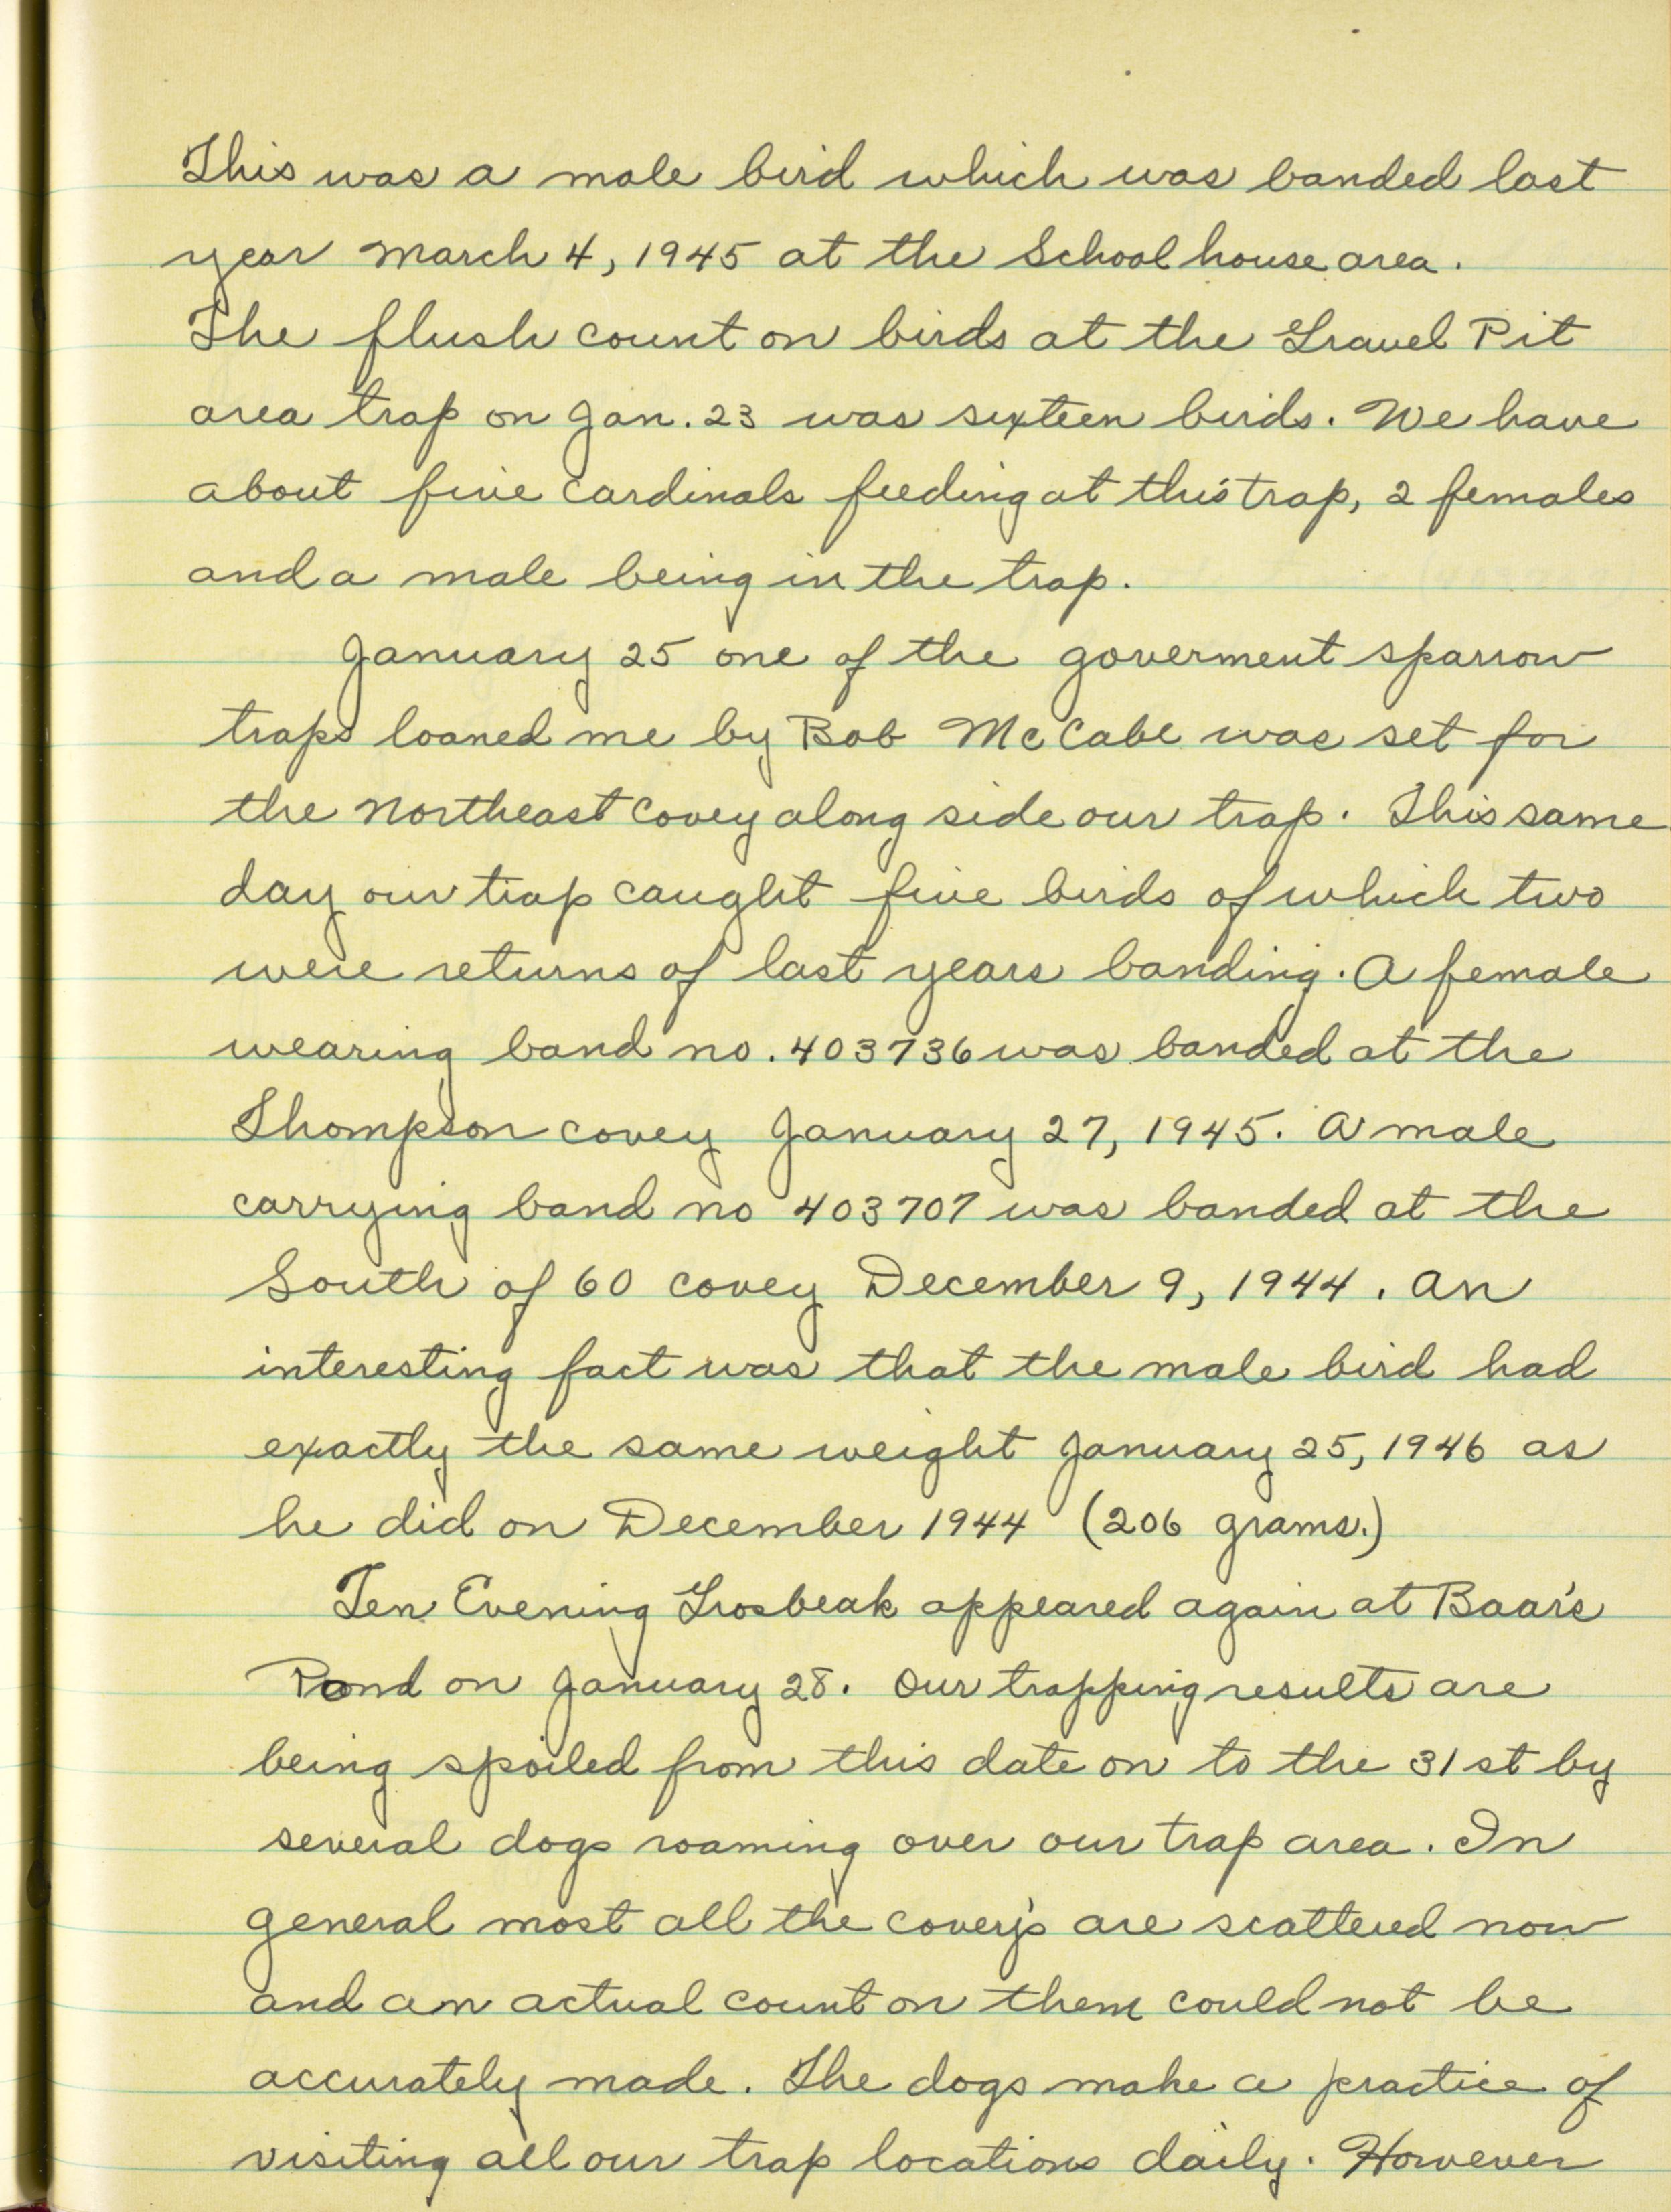 This was a male bird which was banded last
year March 4, 1945 at the School house area.
The flush count on birds at the Gravel Pit
area trap on Jan. 23 was sixteen birds. We have
about five cardinals feeding at this trap, 2 females
and a male being in the trap.
January 25 one of the goverment sparrow
traps loaned me by Bob McCabe was set for
the Northeast covey along side our trap. This same
day our trap caught five birds of which two
were returns of last years banding. A female
wearing band no. 403736 was banded at the
Thompson covey January 27, 1945. A male
carrying band no 403707 was banded at the
South of 60 covey December 9, 1944. An
interesting fact was that the male bird had
exactly the same weight January 25, 1946 as
he did on December 1944 (206 grams.)
Ten Evening Grosbeak appeared again at Baar's
Pond on January 28. Our trapping results are
being spoiled from this date on to the 31st by
several dogs roaming over our trap area. In
general most all the covey's are scattered now
and an actual count on them could not be
accurately made. The dogs make a practice of
visiting all our trap locations daily. However